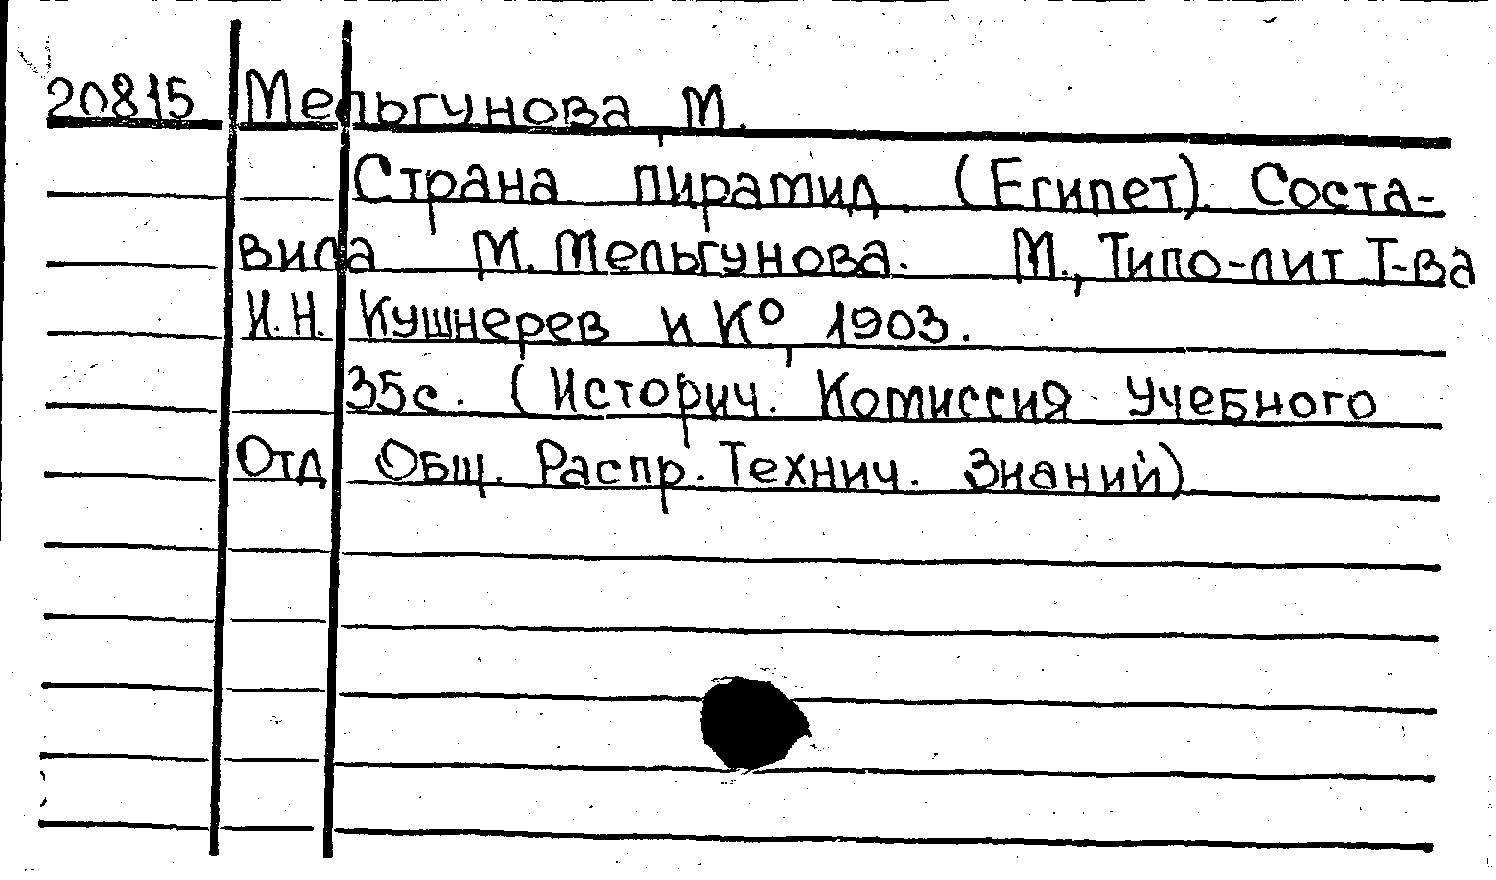 20815 Мельгунова М.
Страна пирамид. (Египет). Соста-
вила М. Мельгунова. М., Типо-лит Т-ва
И.Н. Кушнерев и К⁰, 1903.
35с. (Историч. Комиссия Учебного
Отд Общ. Распр. Технич. Знаний)